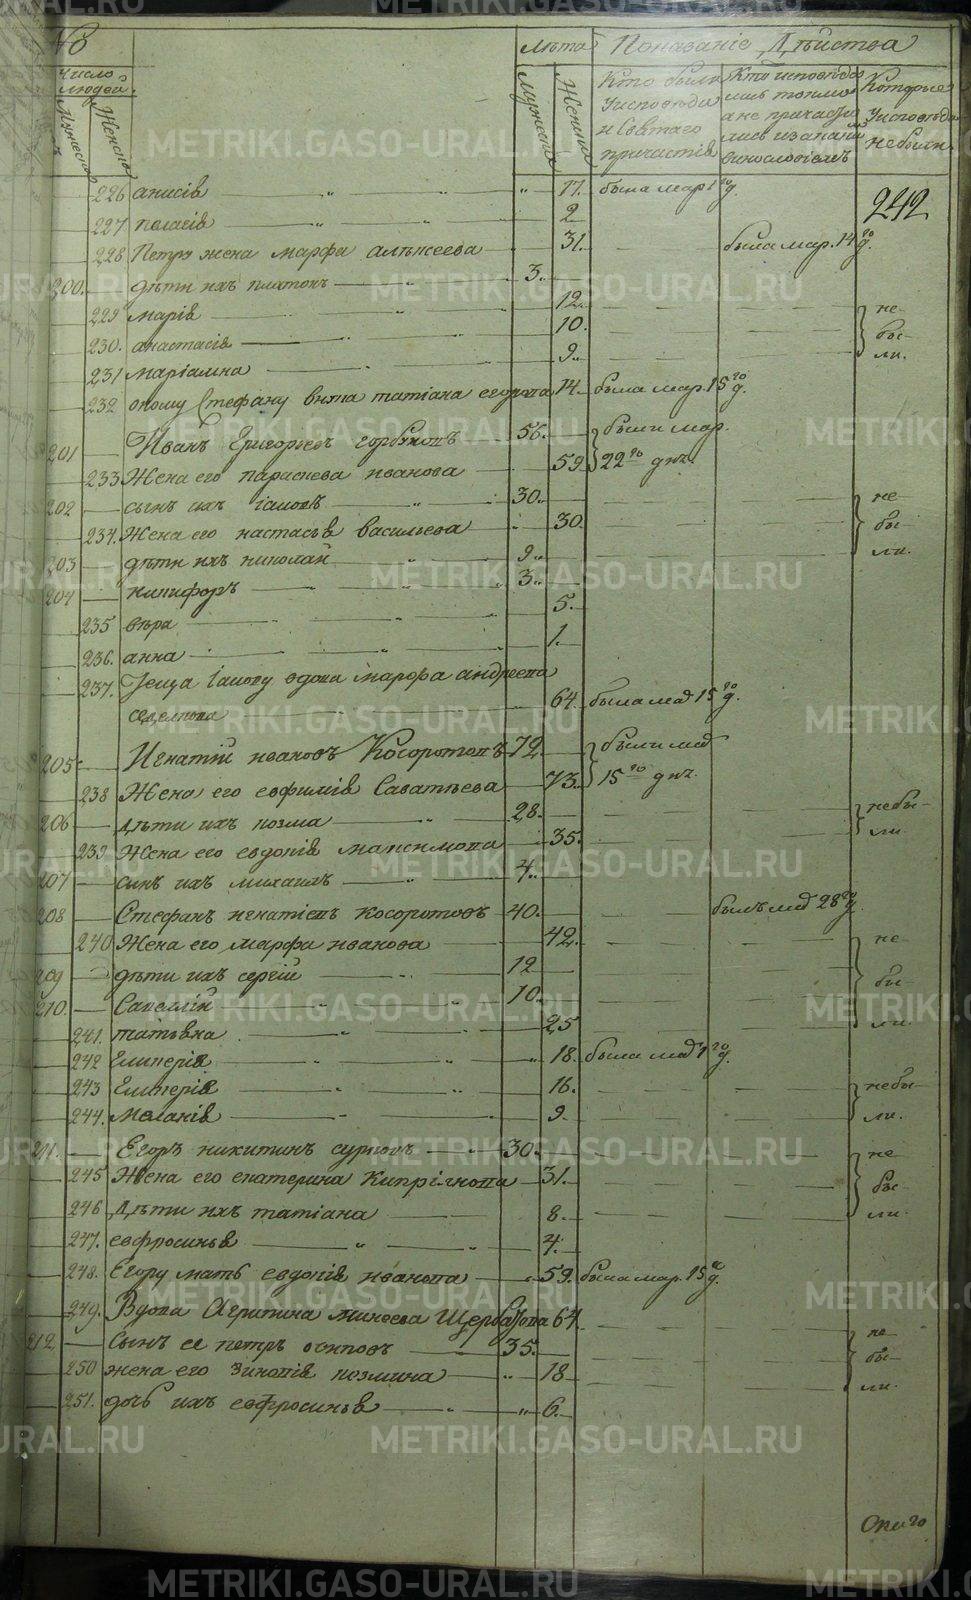 Число людей
Мужеска
Женска
Лѣта
Мужеска
Женска
Показаніе Дѣйства
Кто были
Уисповѣди
и Святаго
причастія
Кто исповѣда
лись токмо
а не причасти
лись
Которые
Уисповѣди
небыли
226 анисія " " 17. была мар. 1 го д.
242
227 пелагія " 2
228 Петру жена марфа алѣксеева 31. была мар. 14 го д.
200. дѣти ихъ платонъ 3.
229 марія " 12. не
230. анастасія 10. бы-
231 маріамна 9. ли.
232 оному Стефану татіана егорова 14. была мар. 15 го д.
201 Иванъ Григорьевъ горбуновъ 56. были мар.
233 Жена его параскева иванова 59 22 го дня.
202 сынъ ихъ іаковъ 30. не
234. Жена его настасья васильева 30. бы-
203 дѣти ихъ николай 9. ли.
204 никифоръ 3.
235 вѣра 5.
236. анна 1.
237. вдова марфа андреева
64. была мар 15 го д.
205 Игнатій ивановъ Косоротовъ 72. были мар
238 Жена его евфимія Саватѣева 73. 15 го дня.
206 дѣти ихъ козма 28. небы-
239 Жена его евдокія максимова 35. ли.
207 сынъ ихъ михаилъ 4.
208 Стефанъ игнатіевъ косоротовъ 40. былъ мар 28 го д.
240 Жена его марфа иванова 42. не
209 дѣти ихъ сергій 12 бы-
210. Савелій 10. ли.
241. татьяна 25
242 Гликерія " 18. была мар 1 го д.
243 Гликерія 16. небы-
244. Меланія 9. ли.
211. Егоръ никитинъ 30. не
245 Жена его екатерина Кипріянова 31. бы-
246 дѣти ихъ татіана 8. ли.
247. евфросинья 4.
248. Егору мать евдокія иванова 59. была мар. 15 го д.
249. Вдова Агрипина минеева Щербакова 64 не
212 Сынъ ее петръ осиповъ 35. бы-
250 жена его Зиновія козмина 18 ли.
251. дочь ихъ евфросинья 6.
METRIKI.GASO-URAL.RU